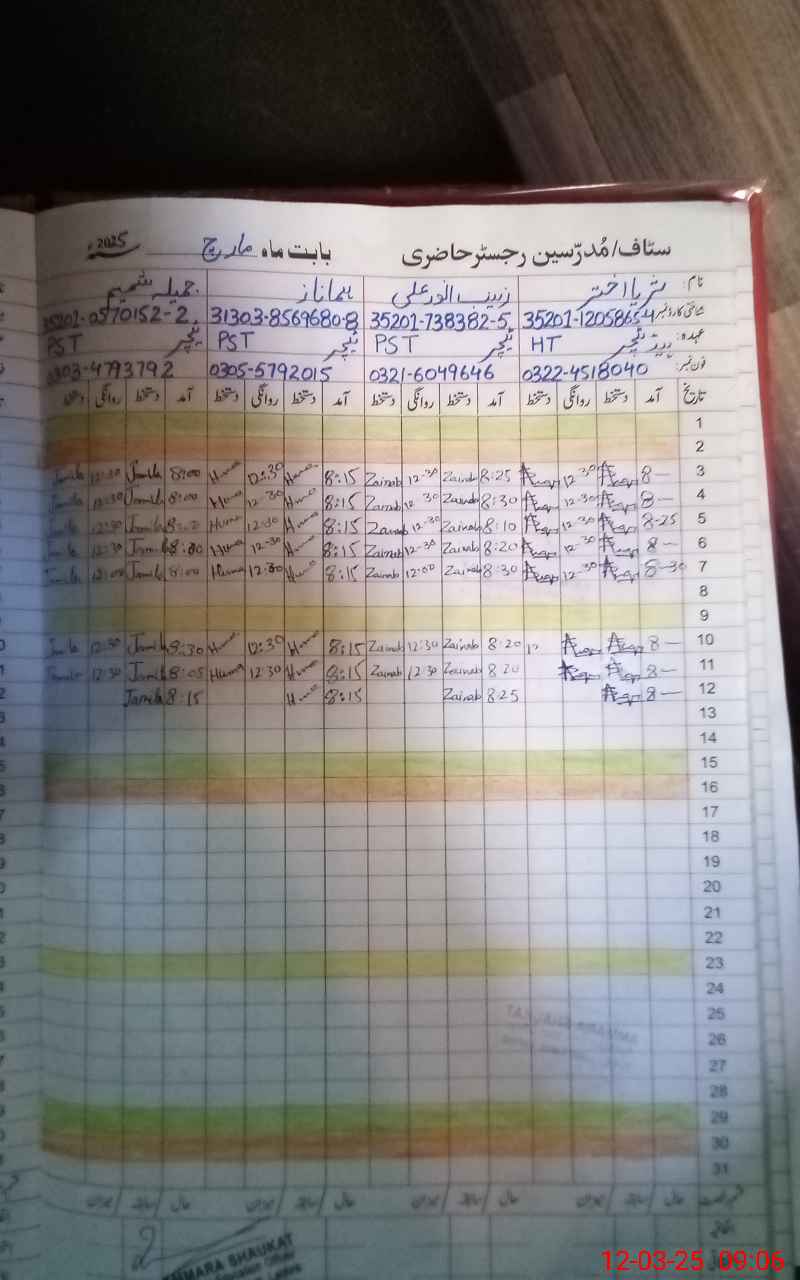 سٹاف/مُدرّسین رجسٹر حاضری بابت ماہ مارچ 2025ء
نام: ثریا اختر زینب انور علی ہما ناز جمیلہ شمیم
شناختی کارڈ نمبر 35201-738382-5 31303-8569680-8 35201-0570152-2
عہدہ: ہیڈ ٹیچر HT ٹیچر PST ٹیچر PST ٹیچر PST
فون نمبر: 0322-4518040 0321-6049646 0305-5792015 0303-4793792
تاریخ آمد دستخط روانگی دستخط آمد دستخط روانگی دستخط آمد دستخط روانگی دستخط آمد دستخط روانگی دستخط
1
2
3 8— 12-30 8:25 Zainab 12-30 Zainab 8:15 Huma 12:30 Huma 8:00 Jamila 12:30 Jamila
4 8— 12-30 8:30 Zainab 12 30 Zainab 8:15 Huma 12-30 Huma 8:00 Jamila 12:30 Jamila
5 8-25 12-30 8:10 Zainab 12-30 Zainab 8:15 Huma 12:30 Huma Jamila 12:30 Jamila
6 8— 12-30 8:20 Zainab 12-30 Zainab 8:15 Huma 12-30 Huma 8:00 Jamila 12:30 Jamila
7 8-30 12-30 8:30 Zainab 12:00 Zainab 8:15 Huma 12:30 Huma 8:00 Jamila 12:00 Jamila
8
9
10 8— 8:20 Zainab 12:30 Zainab 8:15 Huma 12:30 Huma 8:30 Jamila 12:30 Jamila
11 8— 8 20 Zainab 12:30 Zainab 8:15 Huma 12:30 Huma 8:05 Jamila 12:30 Jamila
12 8— 8 25 Zainab 8:15 Huma 8:15 Jamila
13
14
15
16
17
18
19
20
21
22
23
24
25
26
27
28
29
30
31
حال / سابقہ / میزان حال / سابقہ / میزان حال / سابقہ / میزان حال / سابقہ / میزان
AMMARA SHAUKAT
12-03-25 09:06